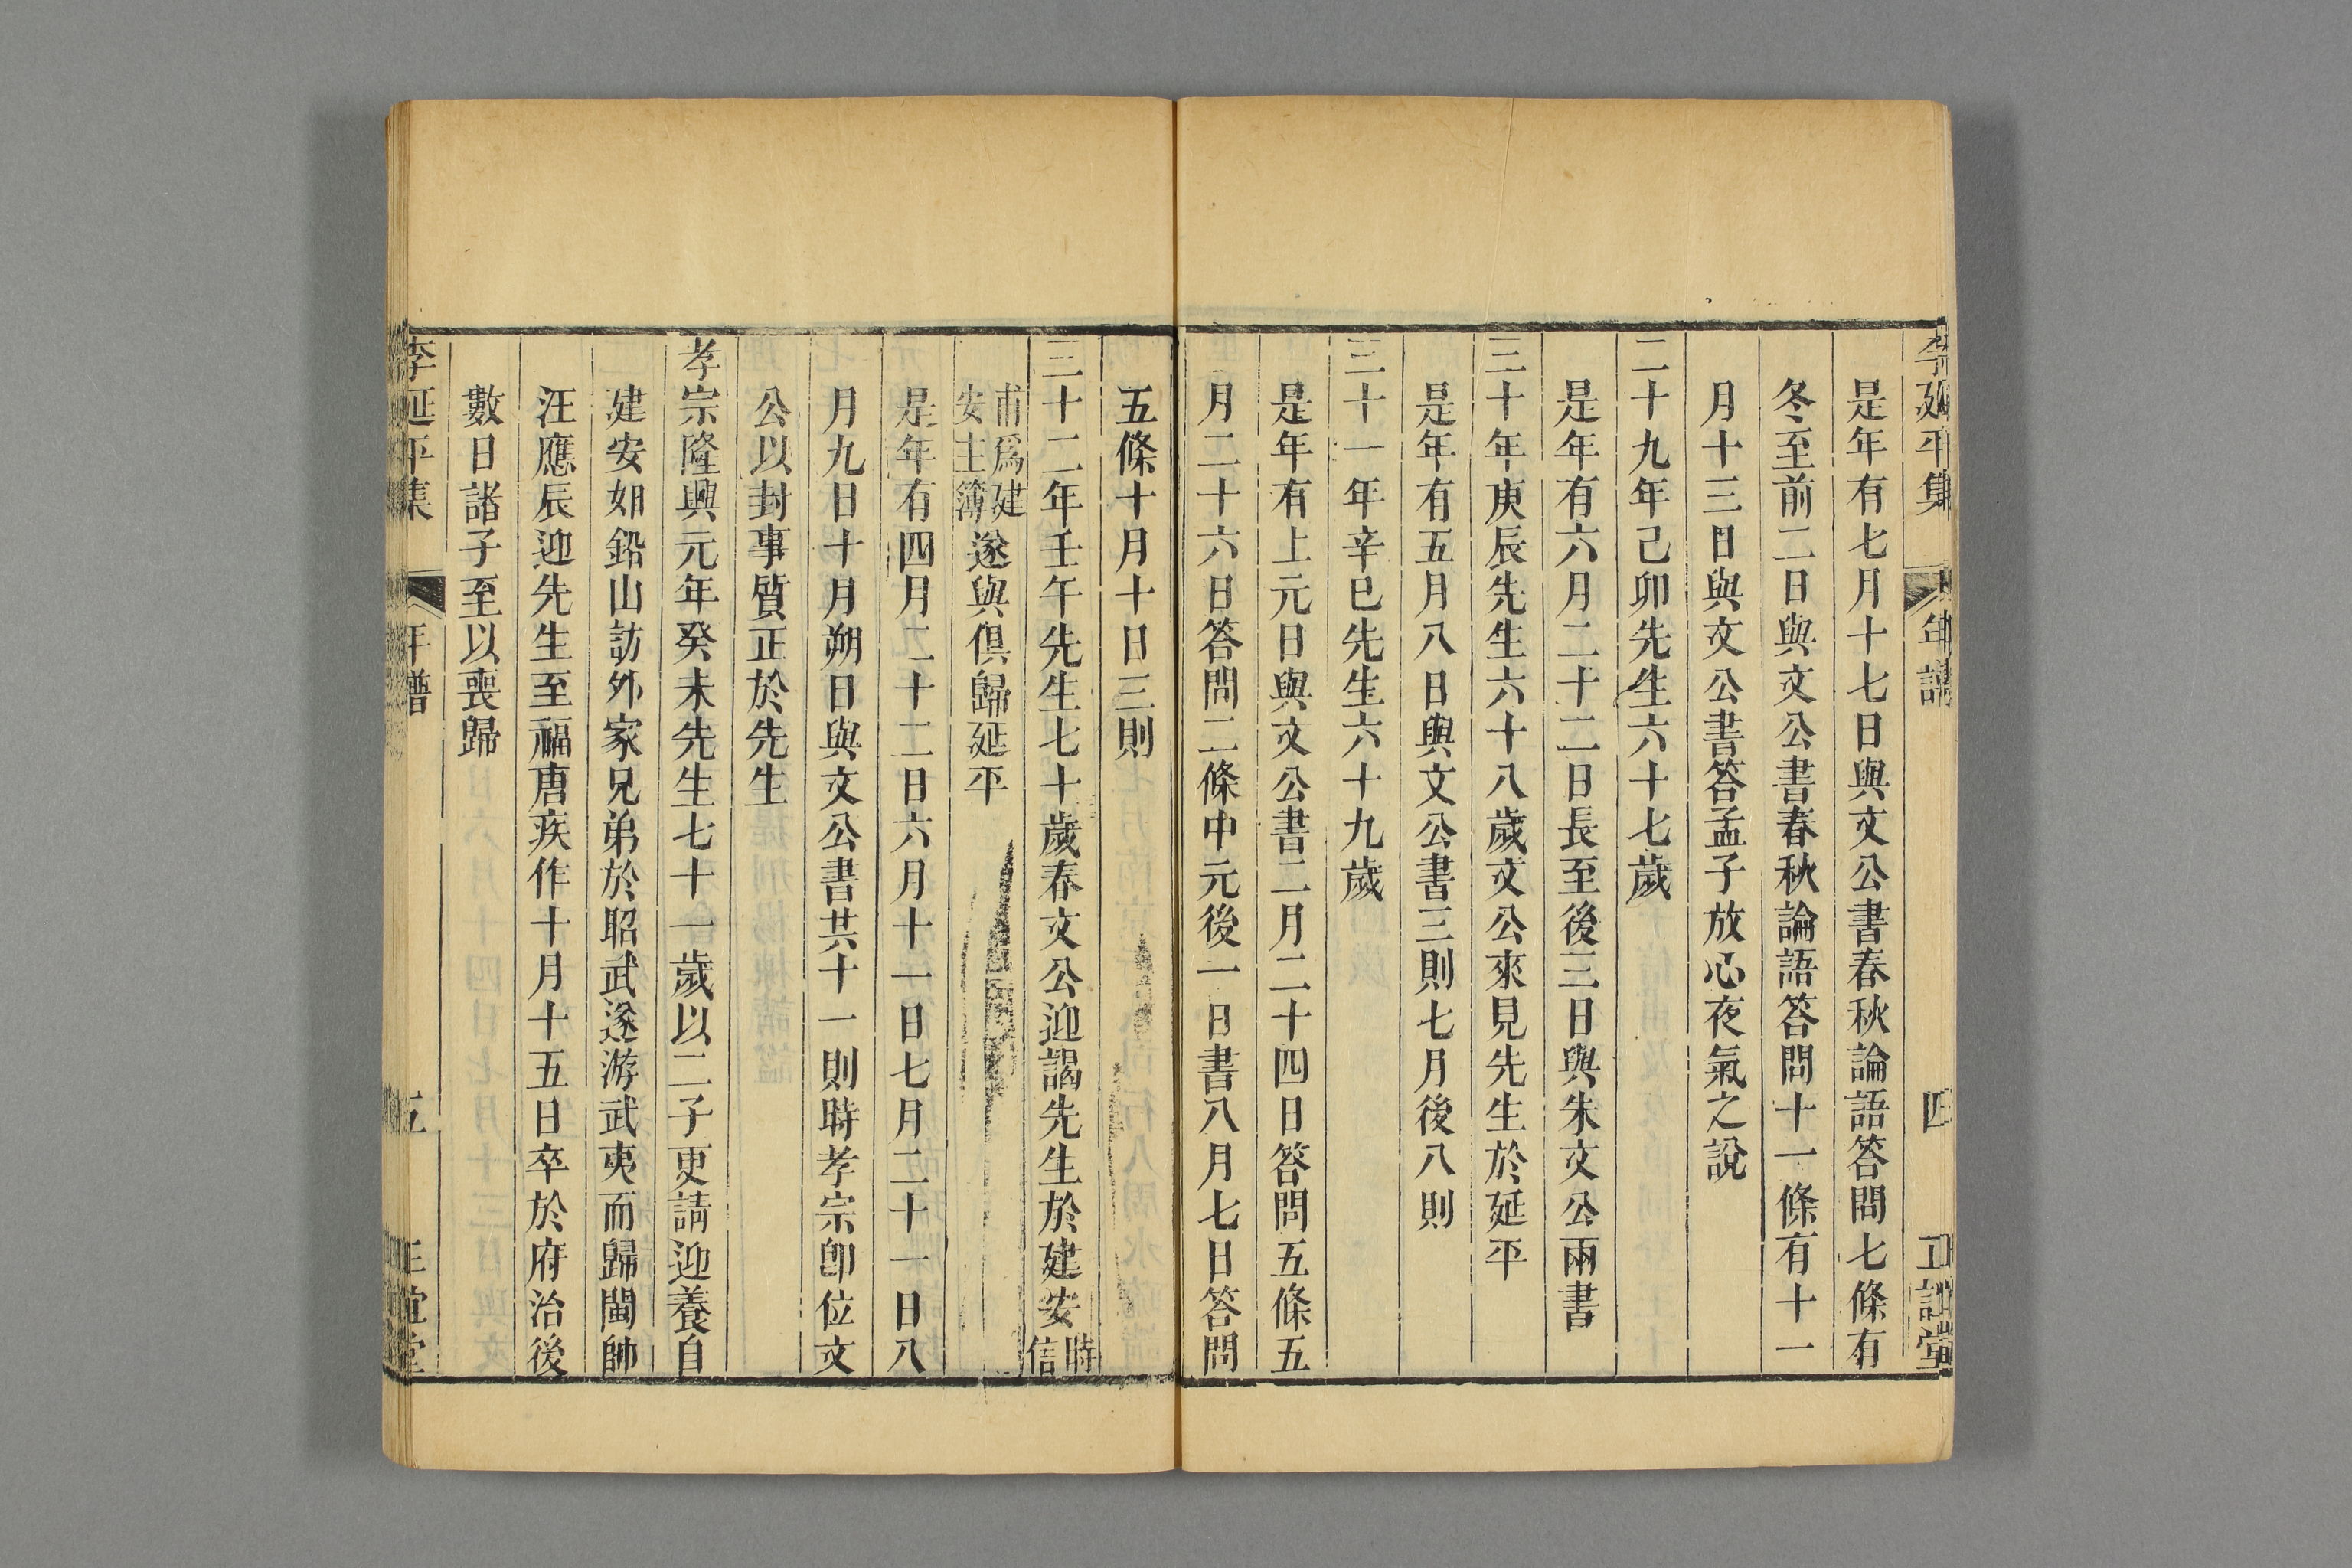 李延平集 年譜 四 正誼堂
是年有七月十七日與文公書春秋論語答問七條有
冬至前二日與文公書春秋論語答問十一條有十一
月十三日與文公書答孟子放心夜氣之說
二十九年己卯先生六十七歲
是年有六月二十二日長至後三日與朱文公兩書
三十年庚辰先生六十八歲文公來見先生於延平
是年有五月八日與文公書三則七月後八則
三十一年辛巳先生六十九歲
是年有上元日與文公書二月二十四日答問五條五
月二十六日答問二條中元後一日書八月七日答問
五條十月十日三則
三十二年壬午先生七十歲春文公迎謁先生於建安時信
甫爲建安主簿遂與俱歸延平
是年有四月二十二日六月十一日七月二十一日八
月九日十月朔日與文公書共十一則時孝宗卽位文
公以封事質正於先生
孝宗隆興元年癸未先生七十一歲以二子更請迎養自
建安如鉛山訪外家兄弟於昭武遂游武夷而歸閩帥
汪應辰迎先生至福唐疾作十月十五日卒於府治後
數日諸子至以喪歸
李延平集 年譜 五 正誼堂